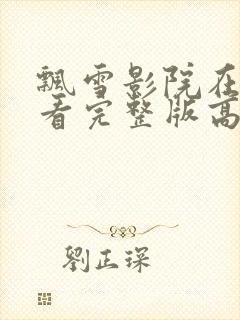 飘雪影院在
看完整版高
劉正琛